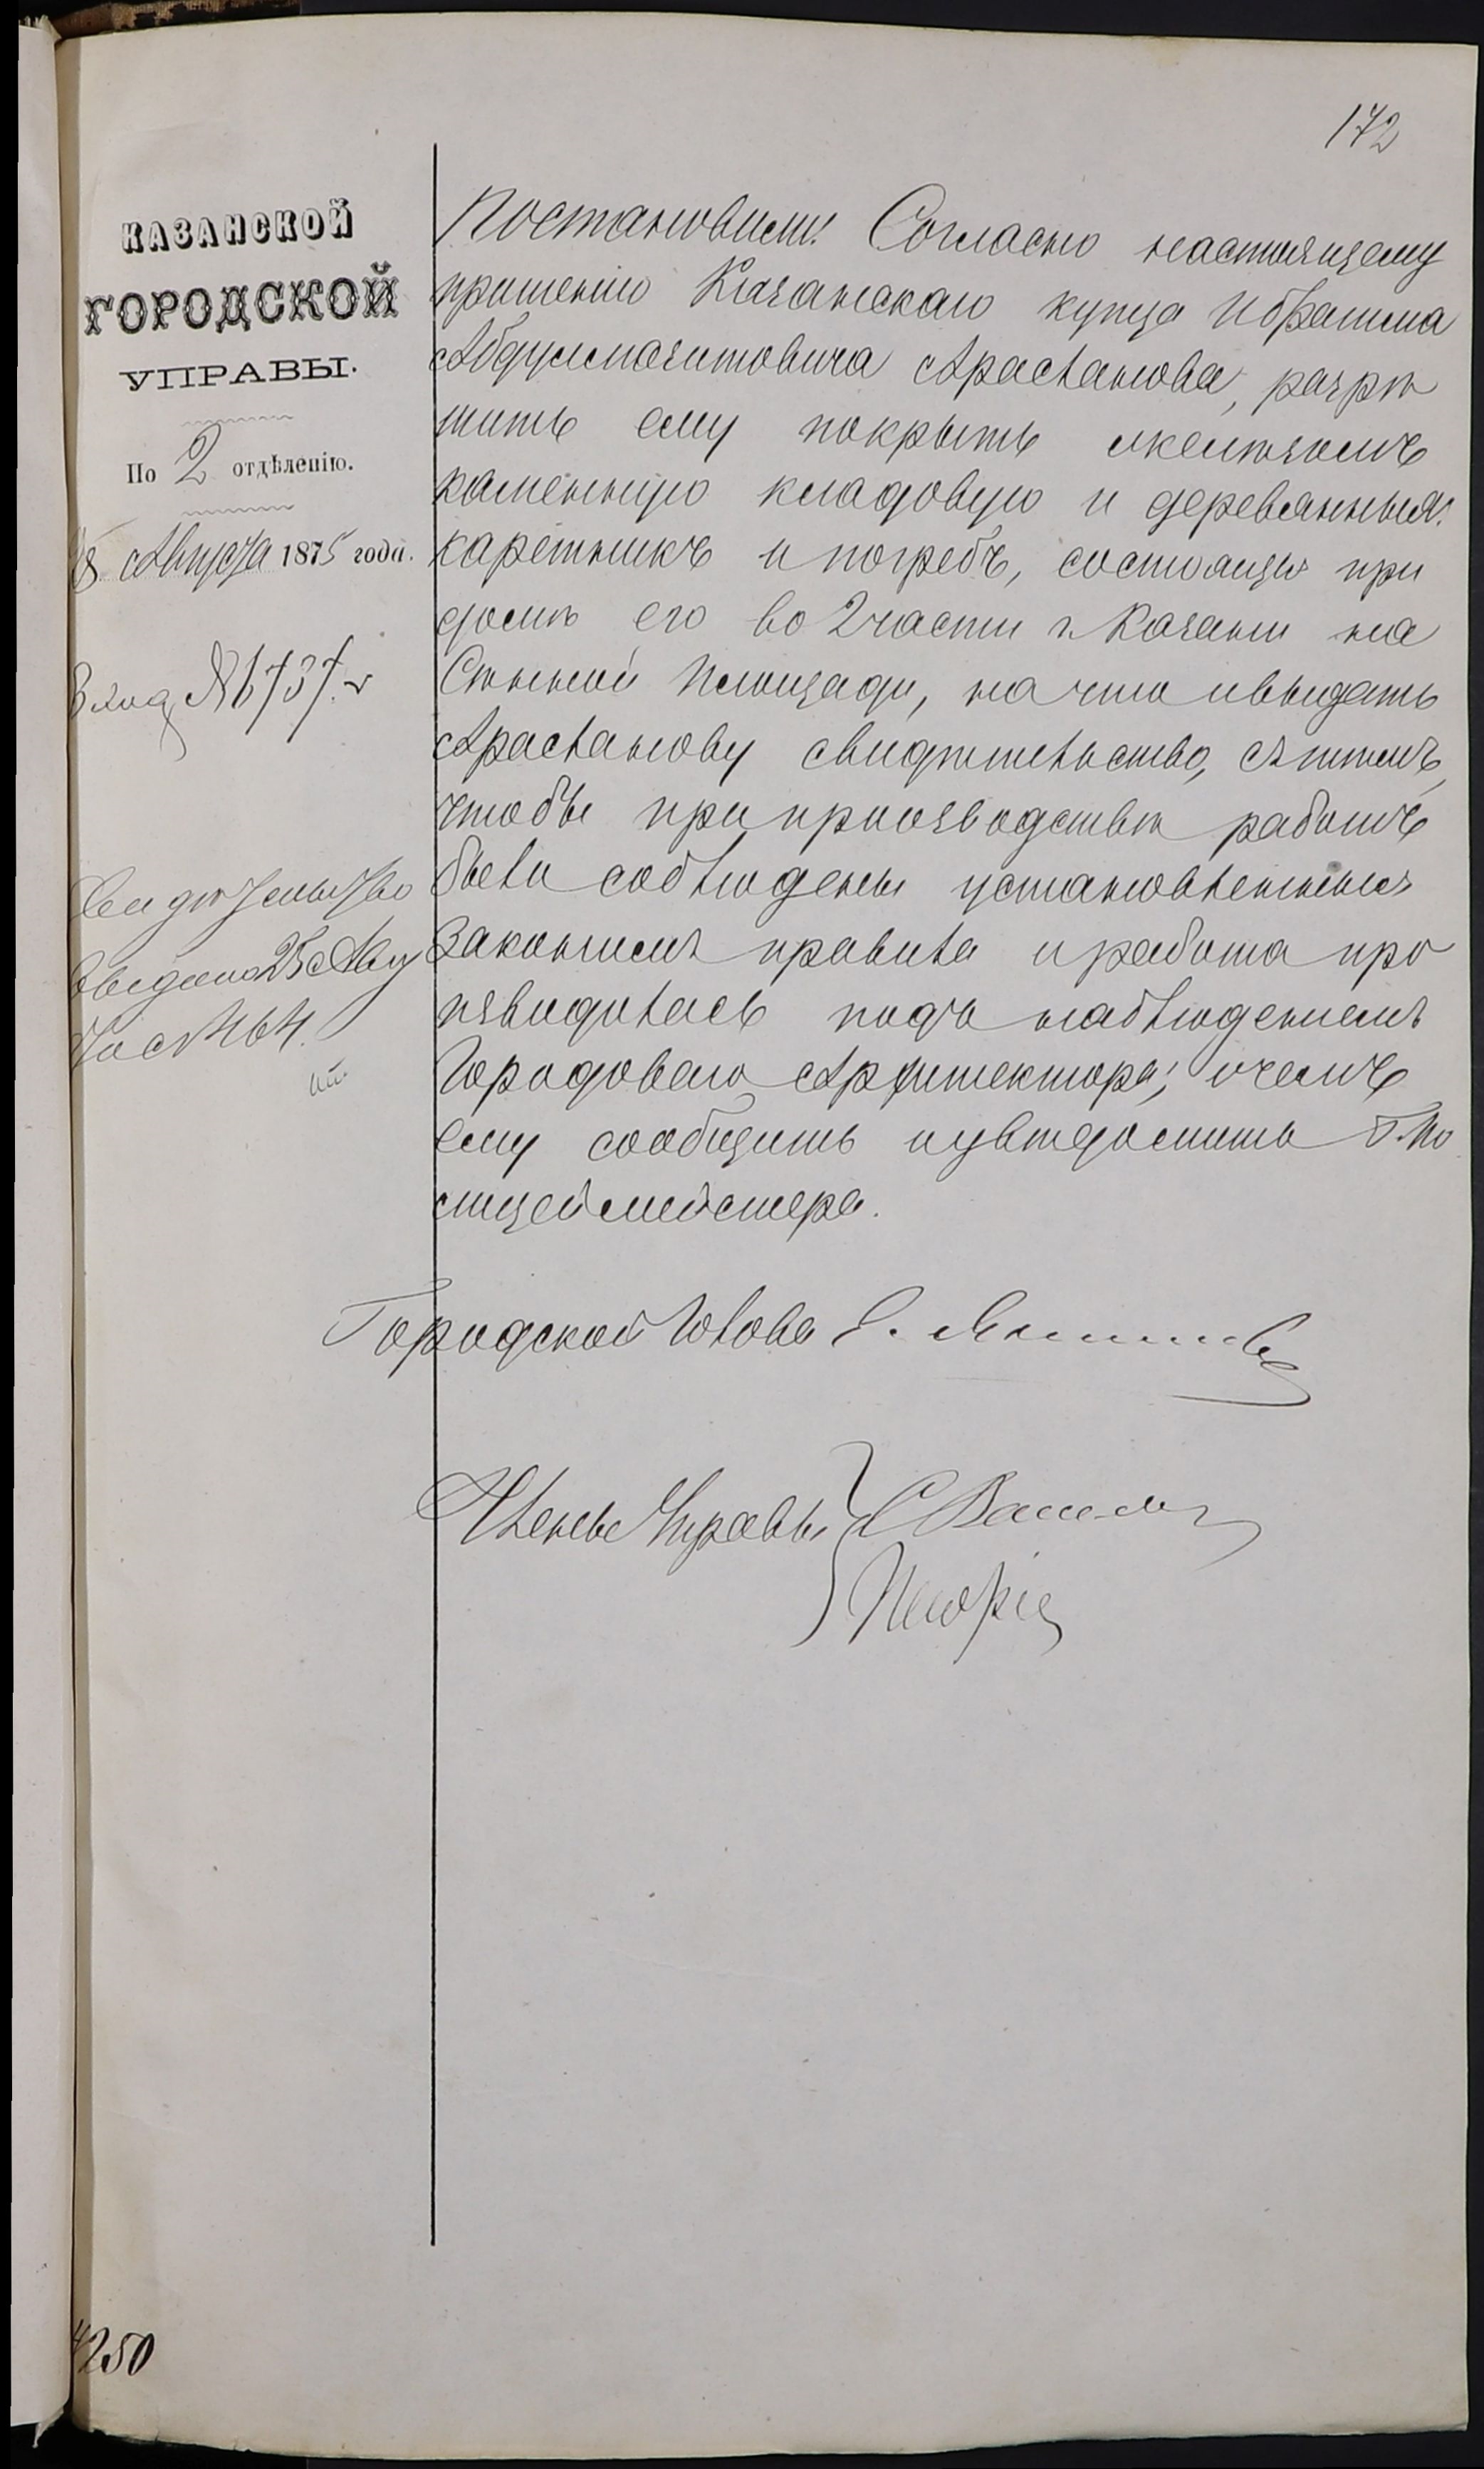 172
КАЗАНСКОЙ
ГОРОДСКОЙ
УПРАВЫ.
По 2 отдѣленію.
Августа 1875 года.
Вход № 6737.
Свидѣтельство
выдано 25 Авгу
ста № 464.
Постановили: Согласно настоящему
прошенію Казанскаго купца Ибрагима
Абдулмазитовича Арасланова, разрѣ
шить ему покрыть желѣзомъ
каменную кладовую и деревянныя:
каретникъ и погребъ, состоящія при
домѣ его во 2 части г. Казани на
Сѣнной площади, на что и выдать
Арасланову свидѣтельство, съ тѣмъ,
чтобы при производствѣ работъ
были соблюдены установленныя
закономъ правила и работа про
изводилась подъ наблюденіемъ
Городоваго Архитектора; о чемъ
ему сообщить и увѣдомить Г. По
лицеймейстера.
Городской Голова Е.
Члены Управы
4250